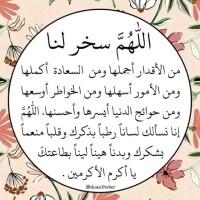 اللَّهُمَّ سخر لنا
من الأقدار أجملها ومن السعادة أكملها
ومن الأمور أسهلها ومن الخواطر أوسعها
ومن حوائج الدنيا أيسرها وأحسنها. اللَّهُمَّ
إنا نسألك لساناً رطباً بذكرك وقلباً منعماً
بشكرك وبدناً هيناً ليناً بطاعتك
يا أكرم الأكرمين .
@duaatheker